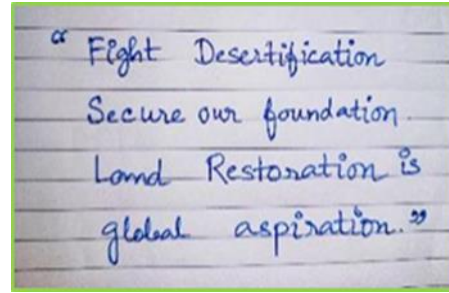 “ Fight Desertification
Secure our foundation.
Land Restoration is
global aspiration.”